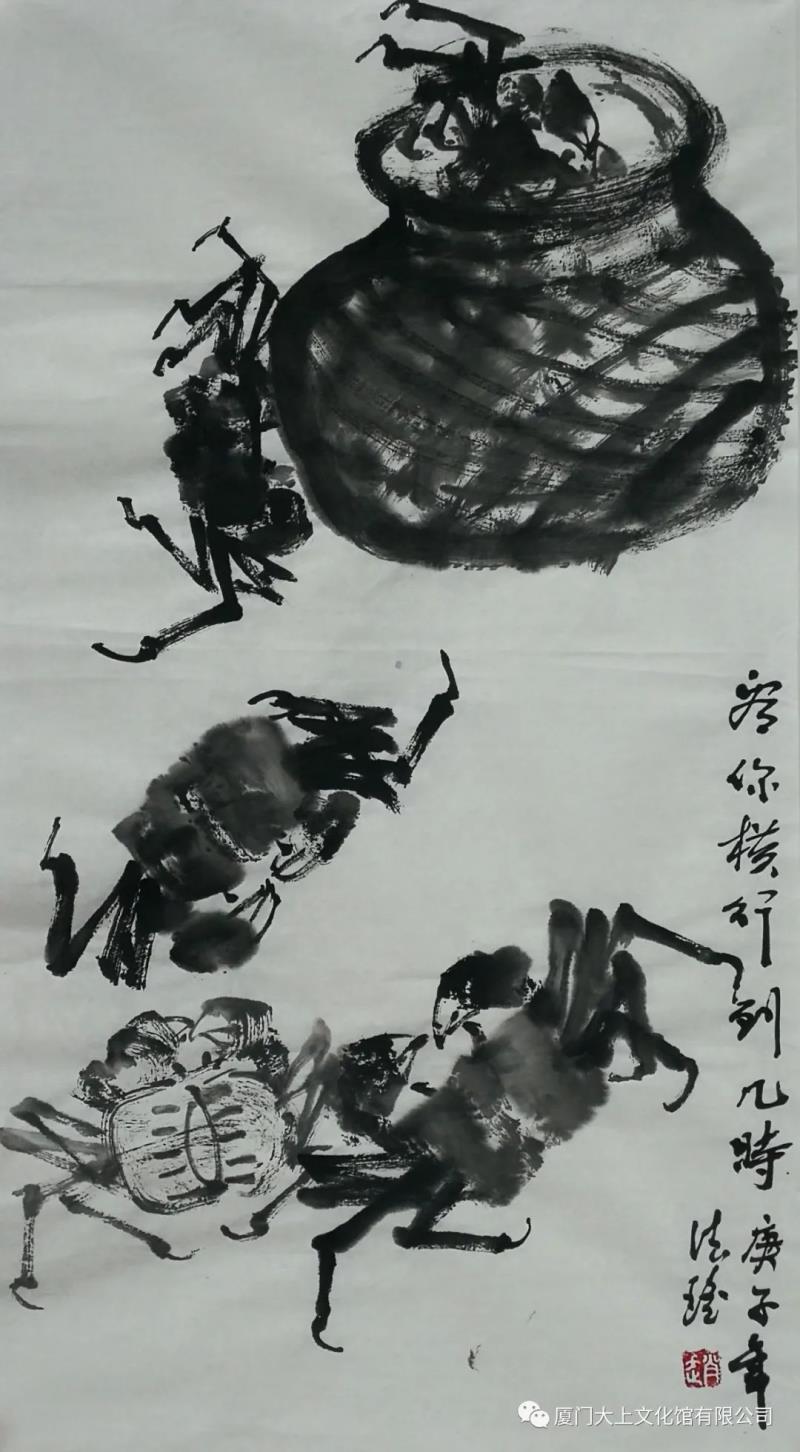 看你横行到几時
庚子年
法瑶
厦门大上文化馆有限公司